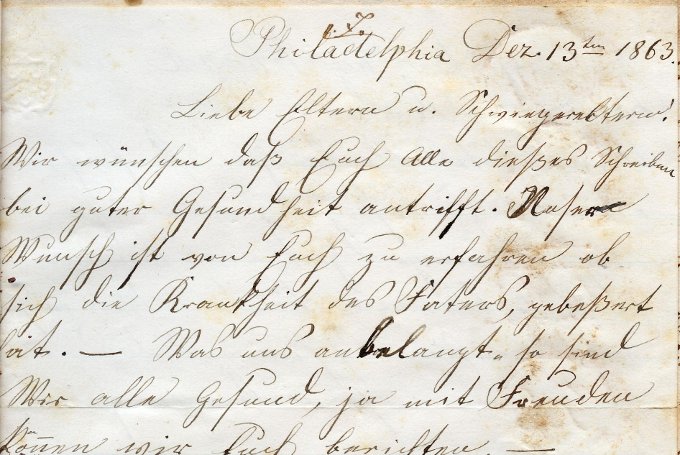 7.
Philadelphia Dez. 13ten 1863.
Liebe Eltern u. Schwiegereltern!
Wir wünschen daß Euch Alle dießes Schreiben
bei guter Gesundheit antrifft. Unser
Wunsch ist von Euch zu erfahren ob
sich die Krankheit des Faters, gebeßert
hat. — Was uns anbelangt, so sind
Wir alle Gesund, ja mit Freuden
können wir Euch berichten, —